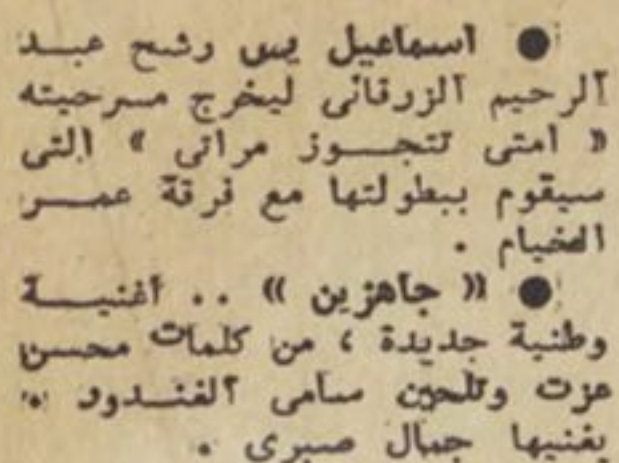 ● اسماعيل يس رشح عبد
الرحيم الزرقانى ليخرج مسرحيته
« امتى تتجوز مراتى » التى
سيقوم ببطولتها مع فرقة عمر
الخيام .
● « جاهزين » .. أغنية
وطنية جديدة ، من كلمات محسن
عزت وتلحين سامى الغندور .
يغنيها جمال صبرى .